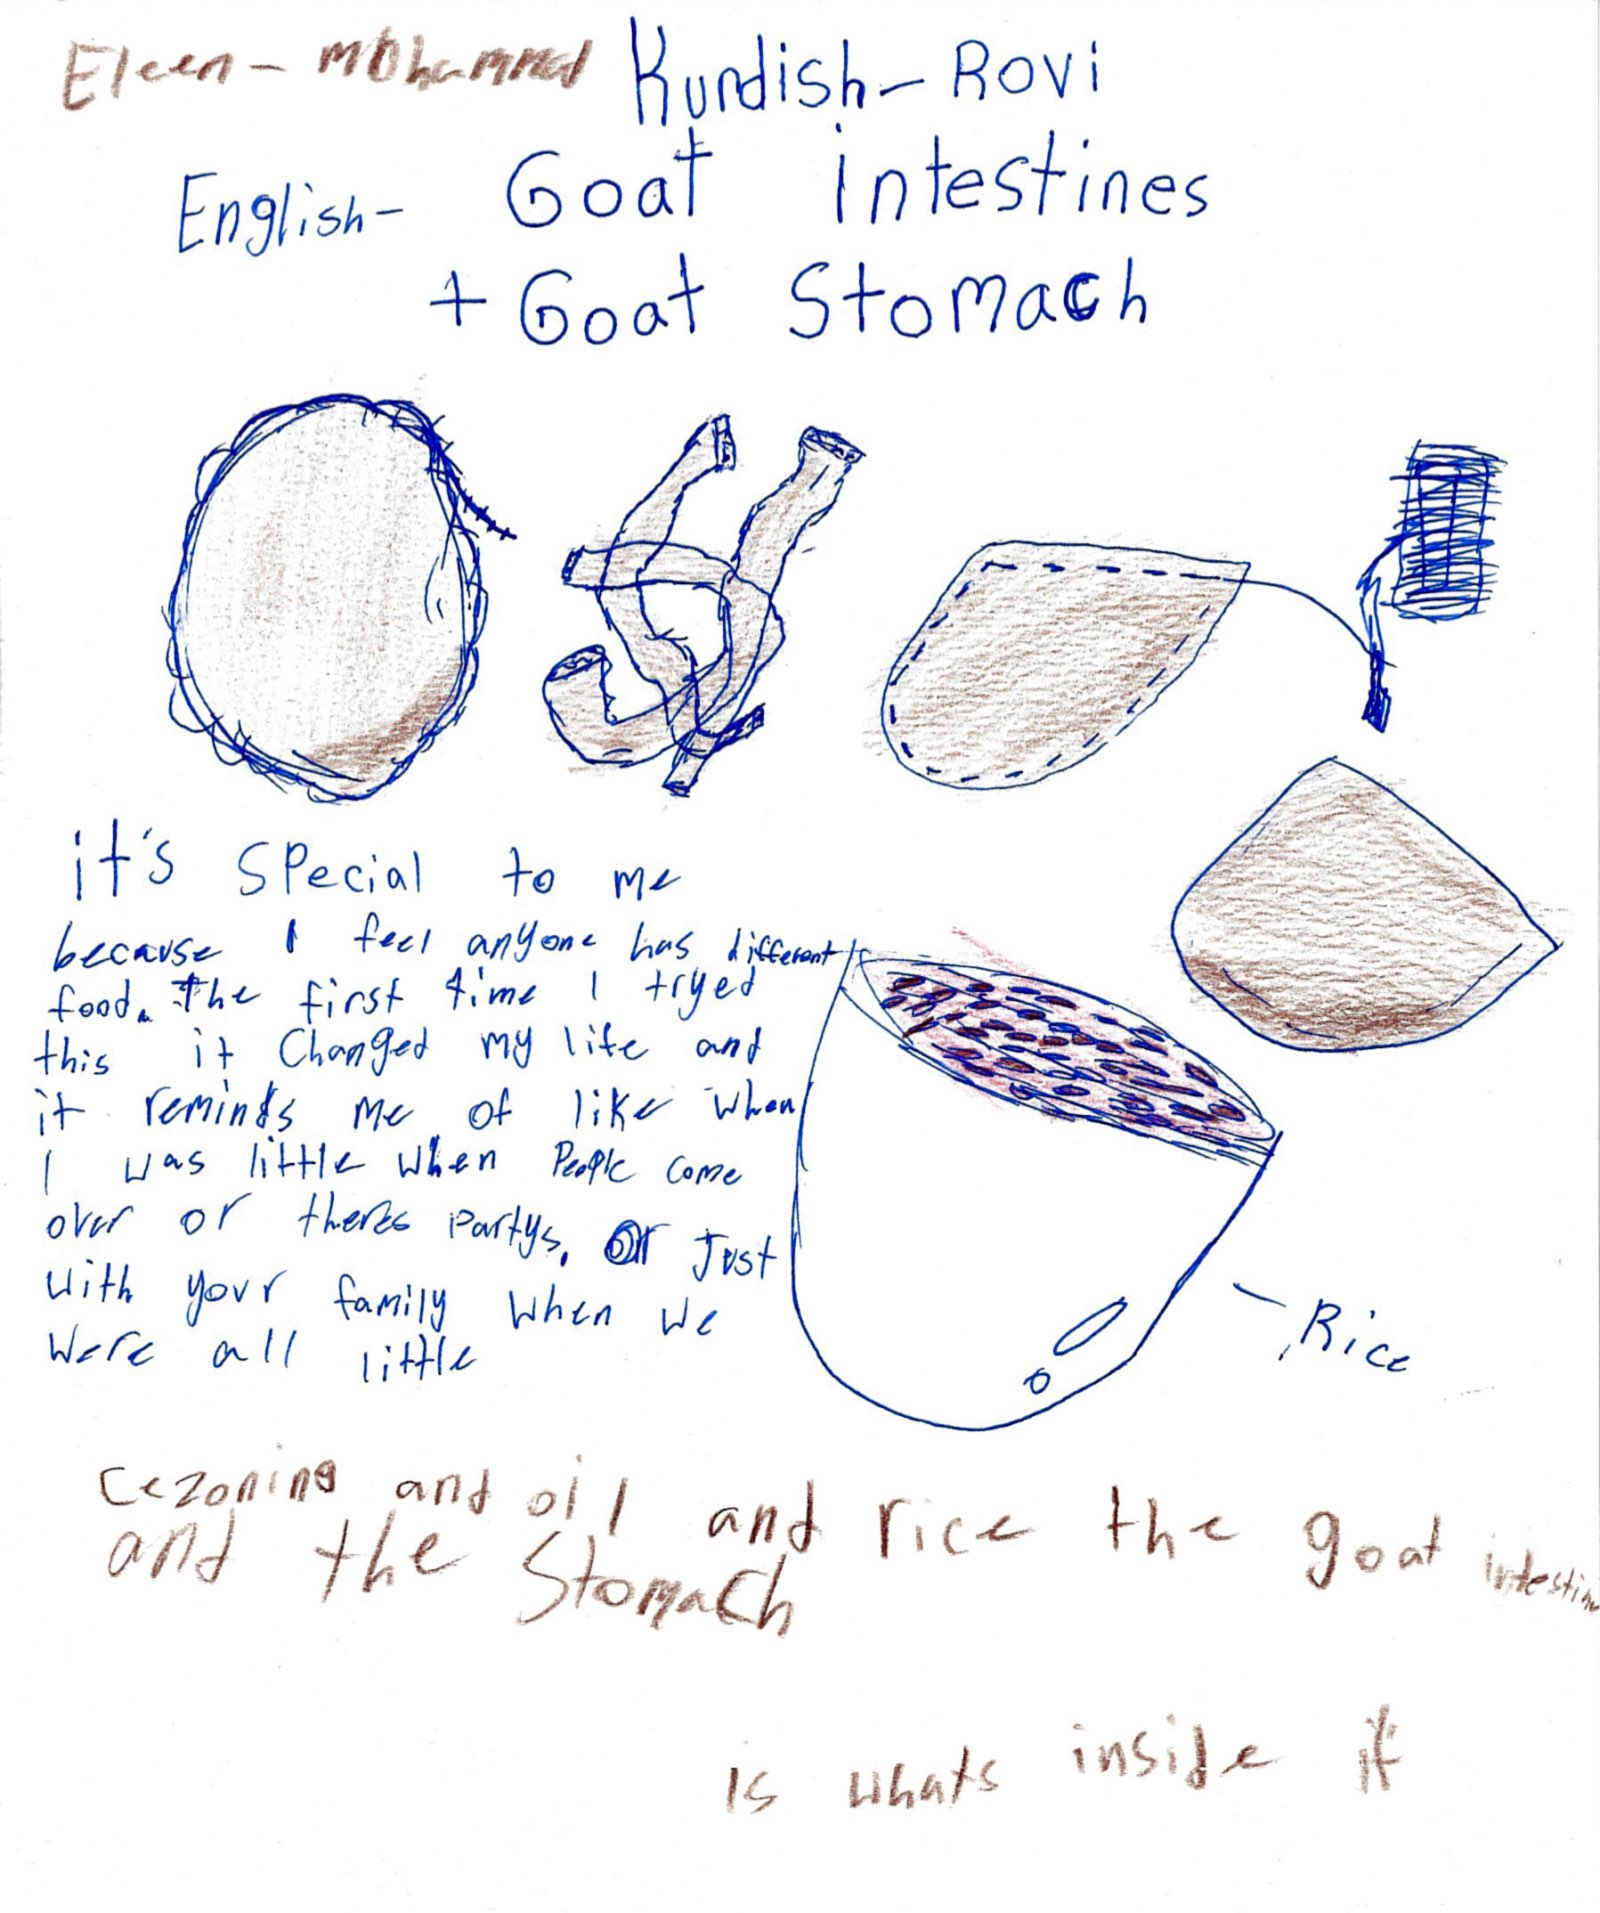 Eleen - mohammed
Kurdish - Rovi
English - Goat intestines
+ Goat Stomach
it's special to me
because I feel anyone has different
food. The first time I tryed
this it changed my life and
it reminds me of like when
I was little when people come
over or theres partys. Or Just
with your family when we
were all little
Rice
cezoning and oil and rice the goat intestin
and the Stomach
is whats inside it